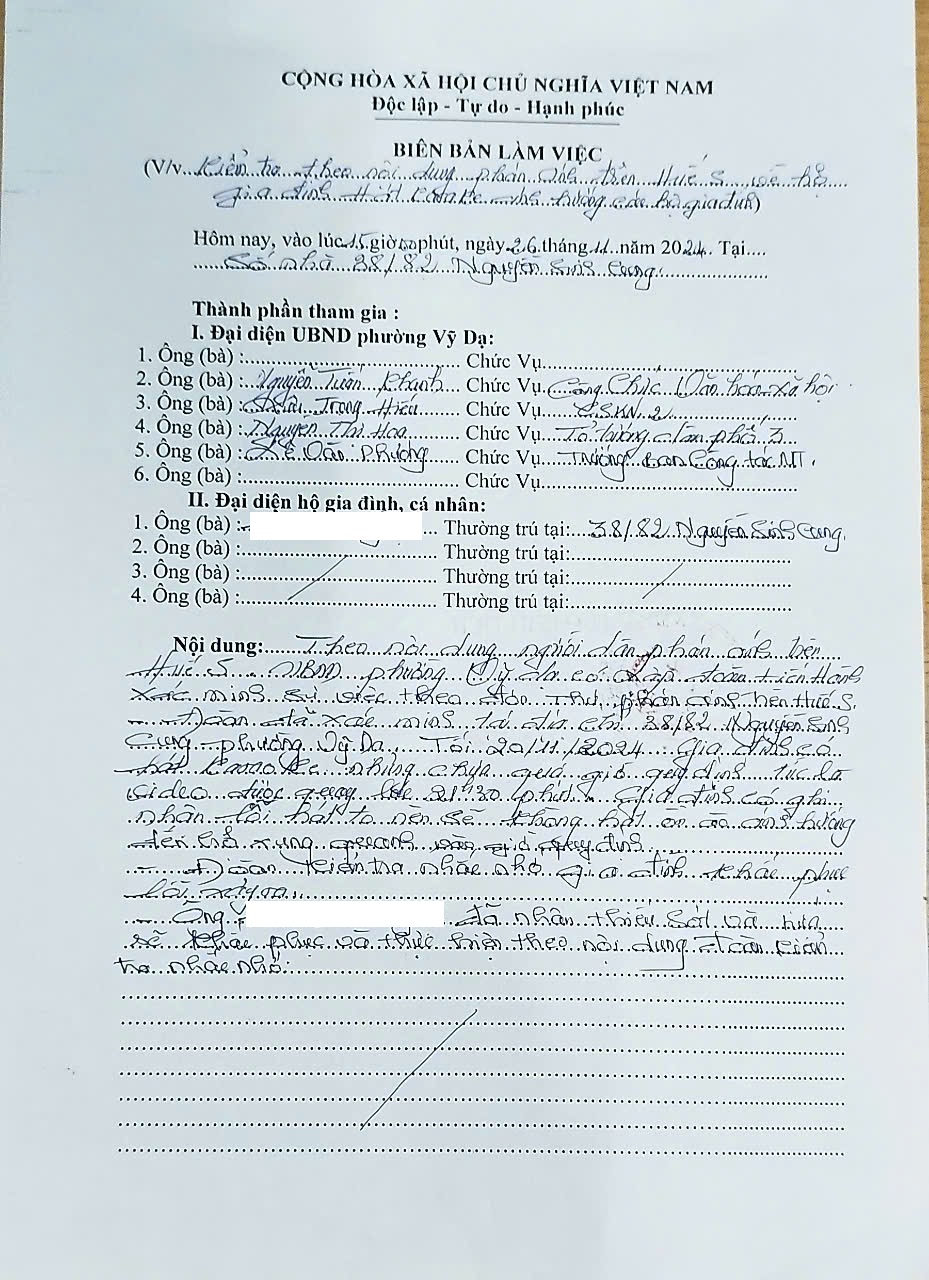 CỘNG HÒA XÃ HỘI CHỦ NGHĨA VIỆT NAM
Độc lập - Tự do - Hạnh phúc
BIÊN BẢN LÀM VIỆC
(V/v...Kiểm tra...theo nội dung phản ánh trên Huế S...về hộ
gia đình Hát karaoke ảnh hưởng các hộ gia đình)
Hôm nay, vào lúc 15 giờ 00 phút, ngày 26 tháng 11 năm 2024. Tại....
Số nhà 38/82 Nguyễn Sinh Cung
Thành phần tham gia :
I. Đại diện UBND phường Vỹ Dạ:
1. Ông (bà) :........ Chức Vụ........
2. Ông (bà) :..Nguyễn Tuấn Khanh Chức Vụ Công Chức Văn hóa xã hội
3. Ông (bà) : Trọng Hiếu Chức Vụ CSKV 2
4. Ông (bà) : Nguyễn Thị Hoa Chức Vụ Tổ trưởng dân phố 3
5. Ông (bà) : Lê Văn Phương Chức Vụ Trưởng ban Công tác MT.
6. Ông (bà) :........ Chức Vụ........
II. Đại diện hộ gia đình, cá nhân:
1. Ông (bà) : Thường trú tại: 38/82 Nguyễn Sinh Cung.
2. Ông (bà) :........ Thường trú tại:........
3. Ông (bà) :........ Thường trú tại:........
4. Ông (bà) :........ Thường trú tại:........
Nội dung: Theo nội dung người dân phản ánh trên
Huế S UBND phường Vỹ Dạ có lập đoàn tiến Hành
xác minh sự việc theo đơn thư phản ánh trên Huế S.
Đoàn đã xác minh tại địa chỉ 38/82 Nguyễn Sinh
Cung phường Vỹ Dạ, Tối 20/11/2024 Gia đình có
hát karaoke nhưng chưa quá giờ quy định tức là
video được quay lúc 21h30 phút. Gia đình có ghi
nhận lỗi hát to nên sẽ không hát ồn ào ảnh hưởng
đến hộ xung quanh giờ quy định
Đoàn kiểm tra nhắc nhở gia đình khắc phục
lỗi xảy ra.
Ông đã nhận thiếu sót và hứa
sẽ khắc phục và thực hiện theo nội dung đoàn kiểm
tra nhắc nhở.